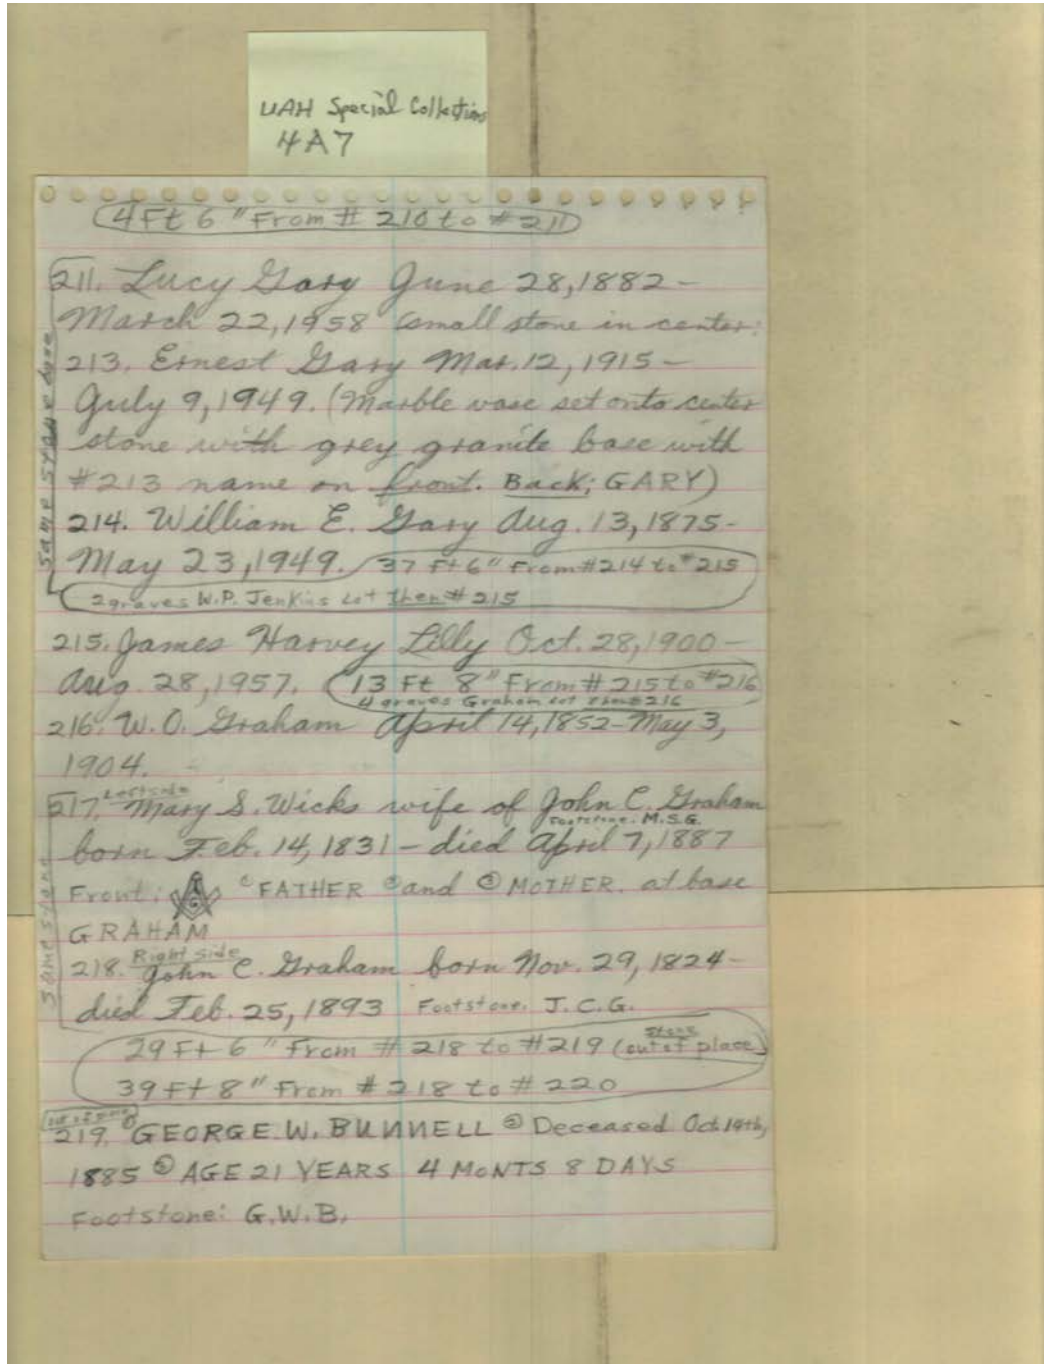 UAH Special Collections
4A7
4Ft 6" From # 210 to # 211
211. Lucy Gary June 28, 1882 -
March 22, 1958 (small stone in center:
213. Ernest Gary Mar. 12, 1915 -
July 9, 1949. (Marble vase set onto center
stone with grey granite base with
#213 name on front. Back; GARY)
214. William E. Gary Aug. 13, 1875-
May 23, 1949. 37 Ft 6" From #214 to #215
2 graves W.P. Jenkins Lot then # 215
same stone base
215. James Harvey Lilly Oct. 28, 1900 -
Aug. 28, 1957. 13 Ft 8" From # 215 to #216
4 graves Graham lot then #216
216. W. O. Graham April 14, 1852 - May 3,
1904.
Left side
217. Mary S. Wicks wife of John C. Graham
Footstone: M.S.G.
born Feb. 14, 1831 - died April 7, 1887
Front: G FATHER and MOTHER. at base
GRAHAM
same stone
Right side
218. John C. Graham born Nov. 29, 1824 -
died Feb. 25, 1893 Footstone: J.C.G.
29 Ft 6" From # 218 to #219 (stone out of place)
39 Ft 8" From # 218 to # 220
219. GEORGE W. BUNNELL ② Deceased Oct 19th,
1885 ③ AGE 21 YEARS 4 MONTS 8 DAYS
Footstone: G.W.B.